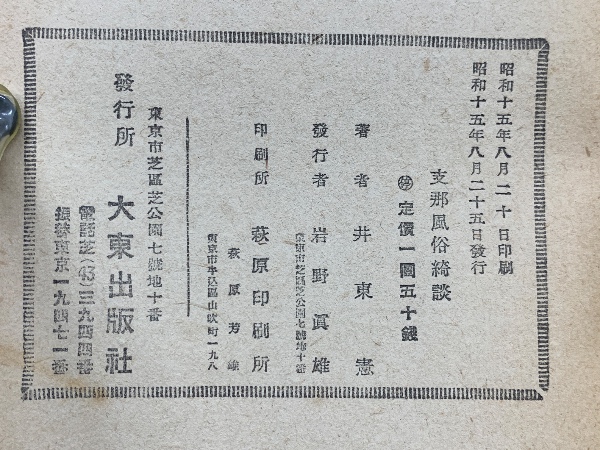 昭和十五年八月二十日印刷
昭和十五年八月二十五日發行
支那風俗綺談
㊞ 定價一圓五十錢
著者 井東憲
發行者 岩野眞雄
東京市芝區芝公園七號地十番
印刷所 萩原印刷所
萩原芳雄
東京市牛込區山吹町一九八
發行所 大東出版社
東京市芝區芝公園七號地十番
電話芝(43)三九四四番
振替東京一九四七一番